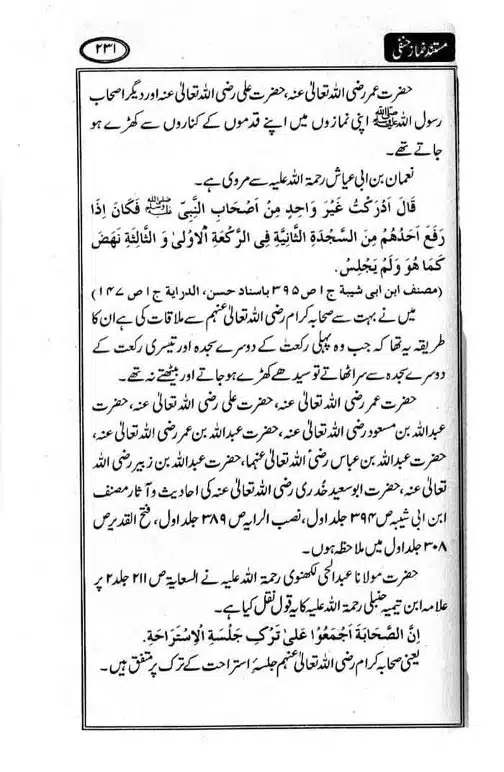 مستند نماز حنفی
۲۳۱
حضرت عمر رضی اللہ تعالیٰ عنہ، حضرت علی رضی اللہ تعالیٰ عنہ اور دیگر اصحاب
رسول اللہ ﷺ اپنی نمازوں میں اپنے قدموں کے کناروں سے کھڑے ہو
جاتے تھے۔
نعمان بن ابی عیاش رحمۃ اللہ علیہ سے مروی ہے۔
قَالَ اَدْرَكْتُ غَيْرَ وَاحِدٍ مِنْ اَصْحَابِ النَّبِيِّ ﷺ فَكَانَ اِذَا
رَفَعَ اَحَدُهُمْ مِنَ السَّجْدَةِ الثَّانِيَةِ فِى الرَّكْعَةِ الْاُوْلىٰ وَ الثَّالِثَةِ نَهَضَ
كَمَا هُوَ وَلَمْ يَجْلِسْ.
(مصنف ابن ابی شیبة ج ا ص ۳۹۵ باسناد حسن، الدرایة ج ا ص ۱۴۷)
میں نے بہت سے صحابہ کرام رضی اللہ تعالیٰ عنہم سے ملاقات کی ہے ان کا
طریقہ یہ تھا کہ جب وہ پہلی رکعت کے دوسرے سجدہ اور تیسری رکعت کے
دوسرے سجدہ سے سر اٹھاتے تو سیدھے کھڑے ہو جاتے اور بیٹھتے نہ تھے۔
حضرت عمر رضی اللہ تعالیٰ عنہ، حضرت علی رضی اللہ تعالیٰ عنہ، حضرت
عبداللہ بن مسعود رضی اللہ تعالیٰ عنہ، حضرت عبداللہ بن عمر رضی اللہ تعالیٰ عنہ،
حضرت عبداللہ بن عباس رضی اللہ تعالیٰ عنہما، حضرت عبداللہ بن زبیر رضی اللہ
تعالیٰ عنہ، حضرت ابو سعید خُدری رضی اللہ تعالیٰ عنہ کی احادیث و آثار مصنف
ابن ابی شیبہ ص ۳۹۴ جلد اول، نصب الرایہ ص ۳۸۹ جلد اول، فتح القدیر ص
۳۰۸ جلد اول میں ملاحظہ ہوں۔
حضرت مولانا عبدالحی لکھنوی رحمۃ اللہ علیہ نے السعایۃ ص ۲۱۱ جلد ۲ پر
علامہ ابن تیمیہ حنبلی رحمۃ اللہ علیہ کا یہ قول نقل کیا ہے۔
اِنَّ الصَّحَابَةَ اَجْمَعُوْا عَلىٰ تَرْكِ جَلْسَةِ الْاِسْتَرَاحَةِ.
یعنی صحابہ کرام رضی اللہ تعالیٰ عنہم جلسہِ استراحت کے ترک پر متفق ہیں۔